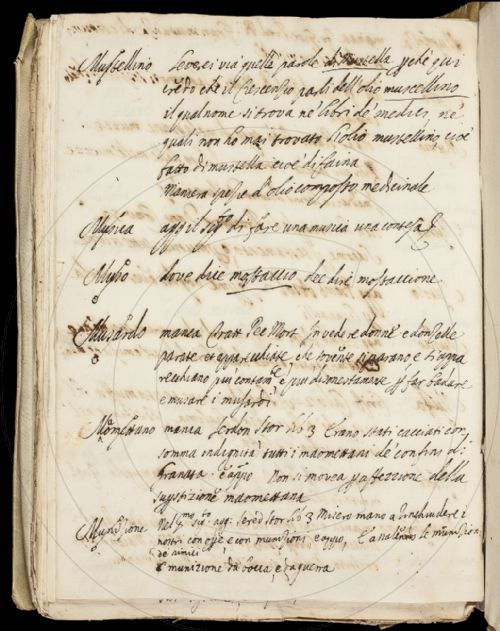 Mustellino levesi via quelle parole di Mustella pche qui
credo che il Crescenzio parli dell'olio muscellino
il qual nome si trova ne' libri de' medici, ne'
quali non ho mai trovato l'olio mustellino, cioè
fatto di mustella cioè di faina
Maniera spesie d'olio composto medicinale
Musica agg il seg.to di fare una musica vera contesa
Muso dove dice mostaccio dee dire mostaccione
Musardo manca Tratt Pec Mort In vedere donne e donzelle
parate et apparecchiate che sovente si parano e s'appa
recchiano più contam.te e più disonestamente p far badare
e musare i musardi
Maomettano manca Serdon Stor lib 3 Erano stati cacciati con
somma indignità tutti i maomettani de' confini di
Granata. e appo Non si movea p affezzione della
supstizione maomettana
Munizione nel p.mo sig.to agg. Sered Stor lib 3 Misero mano a rinchiudere i
nostri con opre e con munizioni e appo, le munizion
de nimici
E munizione da bocca, e da guerra